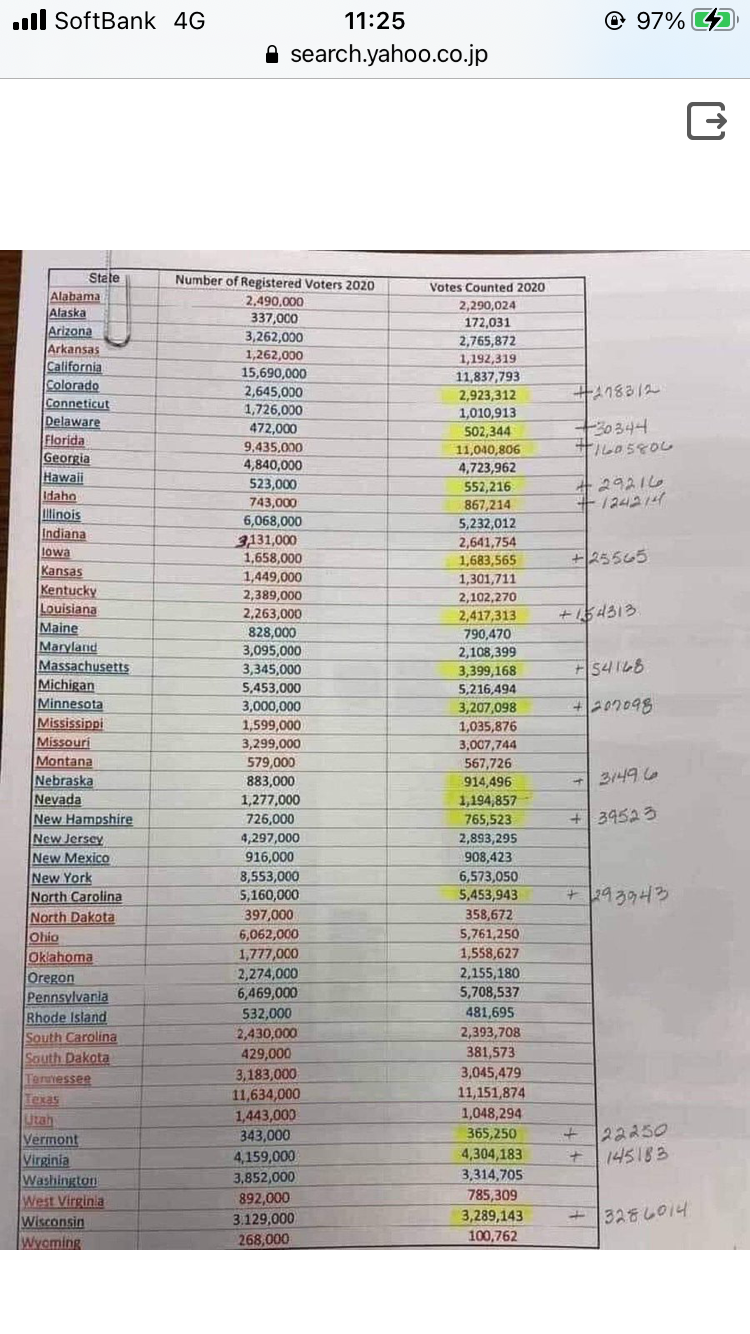 SoftBank 4G 11:25 97%
search.yahoo.co.jp
State Number of Registered Voters 2020 Votes Counted 2020
Alabama 2,490,000 2,290,024
Alaska 337,000 172,031
Arizona 3,262,000 2,765,872
Arkansas 1,262,000 1,192,319
California 15,690,000 11,837,793
Colorado 2,645,000 2,923,312 +278312
Conneticut 1,726,000 1,010,913
Delaware 472,000 502,344 +30344
Florida 9,435,000 11,040,806 +1605806
Georgia 4,840,000 4,723,962
Hawaii 523,000 552,216 + 29216
Idaho 743,000 867,214 + 124214
Illinois 6,068,000 5,232,012
Indiana 3,131,000 2,641,754
Iowa 1,658,000 1,683,565 +25565
Kansas 1,449,000 1,301,711
Kentucky 2,389,000 2,102,270
Louisiana 2,263,000 2,417,313 +154313
Maine 828,000 790,470
Maryland 3,095,000 2,108,399
Massachusetts 3,345,000 3,399,168 + 54168
Michigan 5,453,000 5,216,494
Minnesota 3,000,000 3,207,098 + 207098
Mississippi 1,599,000 1,035,876
Missouri 3,299,000 3,007,744
Montana 579,000 567,726
Nebraska 883,000 914,496 + 31496
Nevada 1,277,000 1,194,857
New Hampshire 726,000 765,523 + 39523
New Jersey 4,297,000 2,893,295
New Mexico 916,000 908,423
New York 8,553,000 6,573,050
North Carolina 5,160,000 5,453,943 + 293943
North Dakota 397,000 358,672
Ohio 6,062,000 5,761,250
Oklahoma 1,777,000 1,558,627
Oregon 2,274,000 2,155,180
Pennsylvania 6,469,000 5,708,537
Rhode Island 532,000 481,695
South Carolina 2,430,000 2,393,708
South Dakota 429,000 381,573
Tennessee 3,183,000 3,045,479
Texas 11,634,000 11,151,874
Utah 1,443,000 1,048,294
Vermont 343,000 365,250 + 22250
Virginia 4,159,000 4,304,183 + 145183
Washington 3,852,000 3,314,705
West Virginia 892,000 785,309
Wisconsin 3.129,000 3,289,143 + 3286014
Wyoming 268,000 100,762